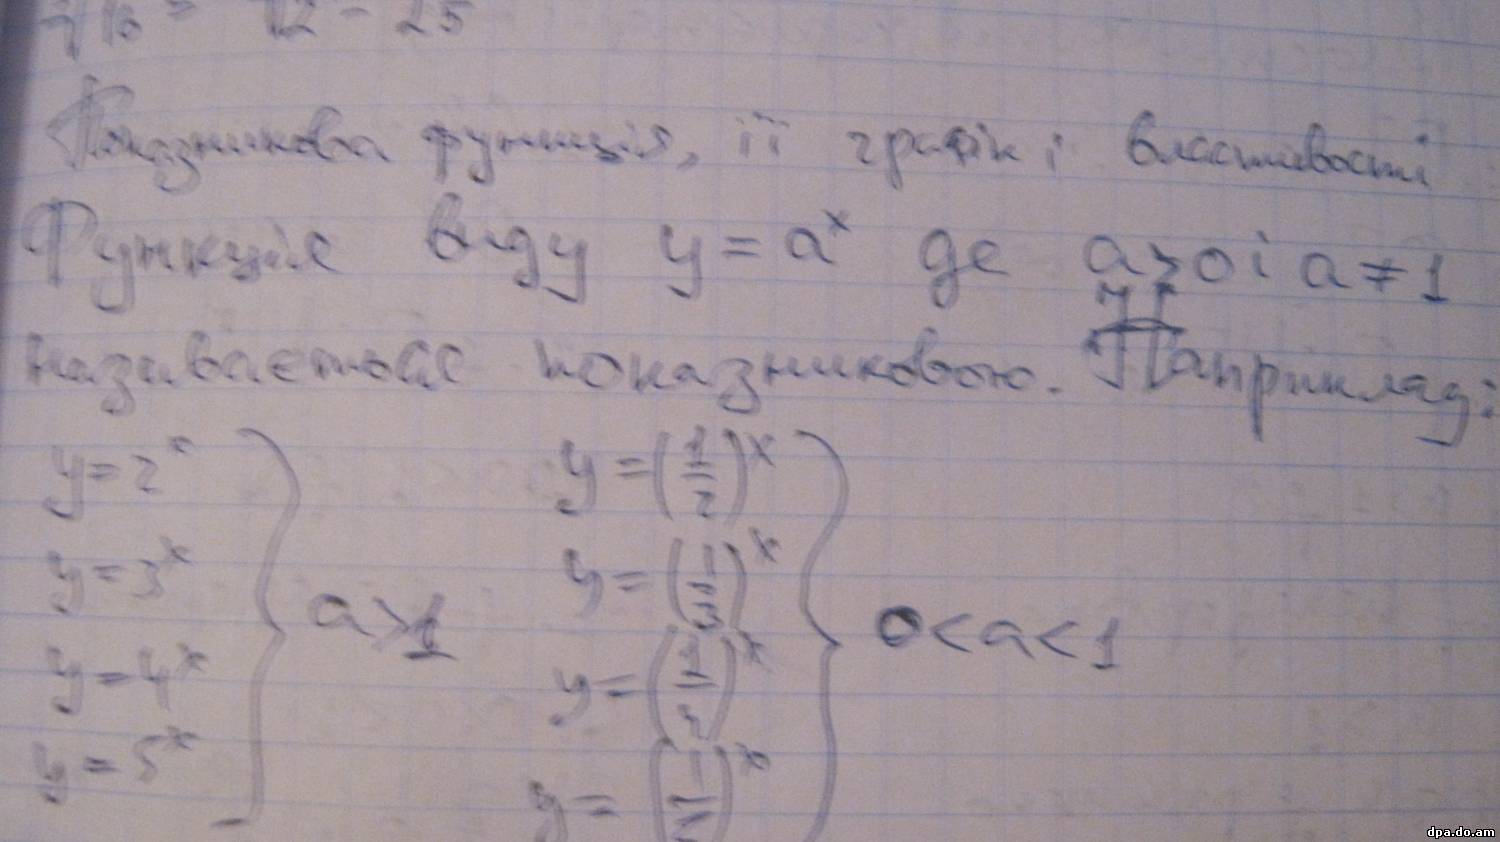 12 - 25
Показникова функція, її графік і властивості
Функція виду y = aˣ де a>0 і a≠1
називається показниковою. Наприклад:
y=2ˣ y=(1/2)ˣ
y=3ˣ y=(1/3)ˣ
a>1 0<a<1
y=4ˣ y=(1/4)ˣ
y=5ˣ y=
dpa.do.am